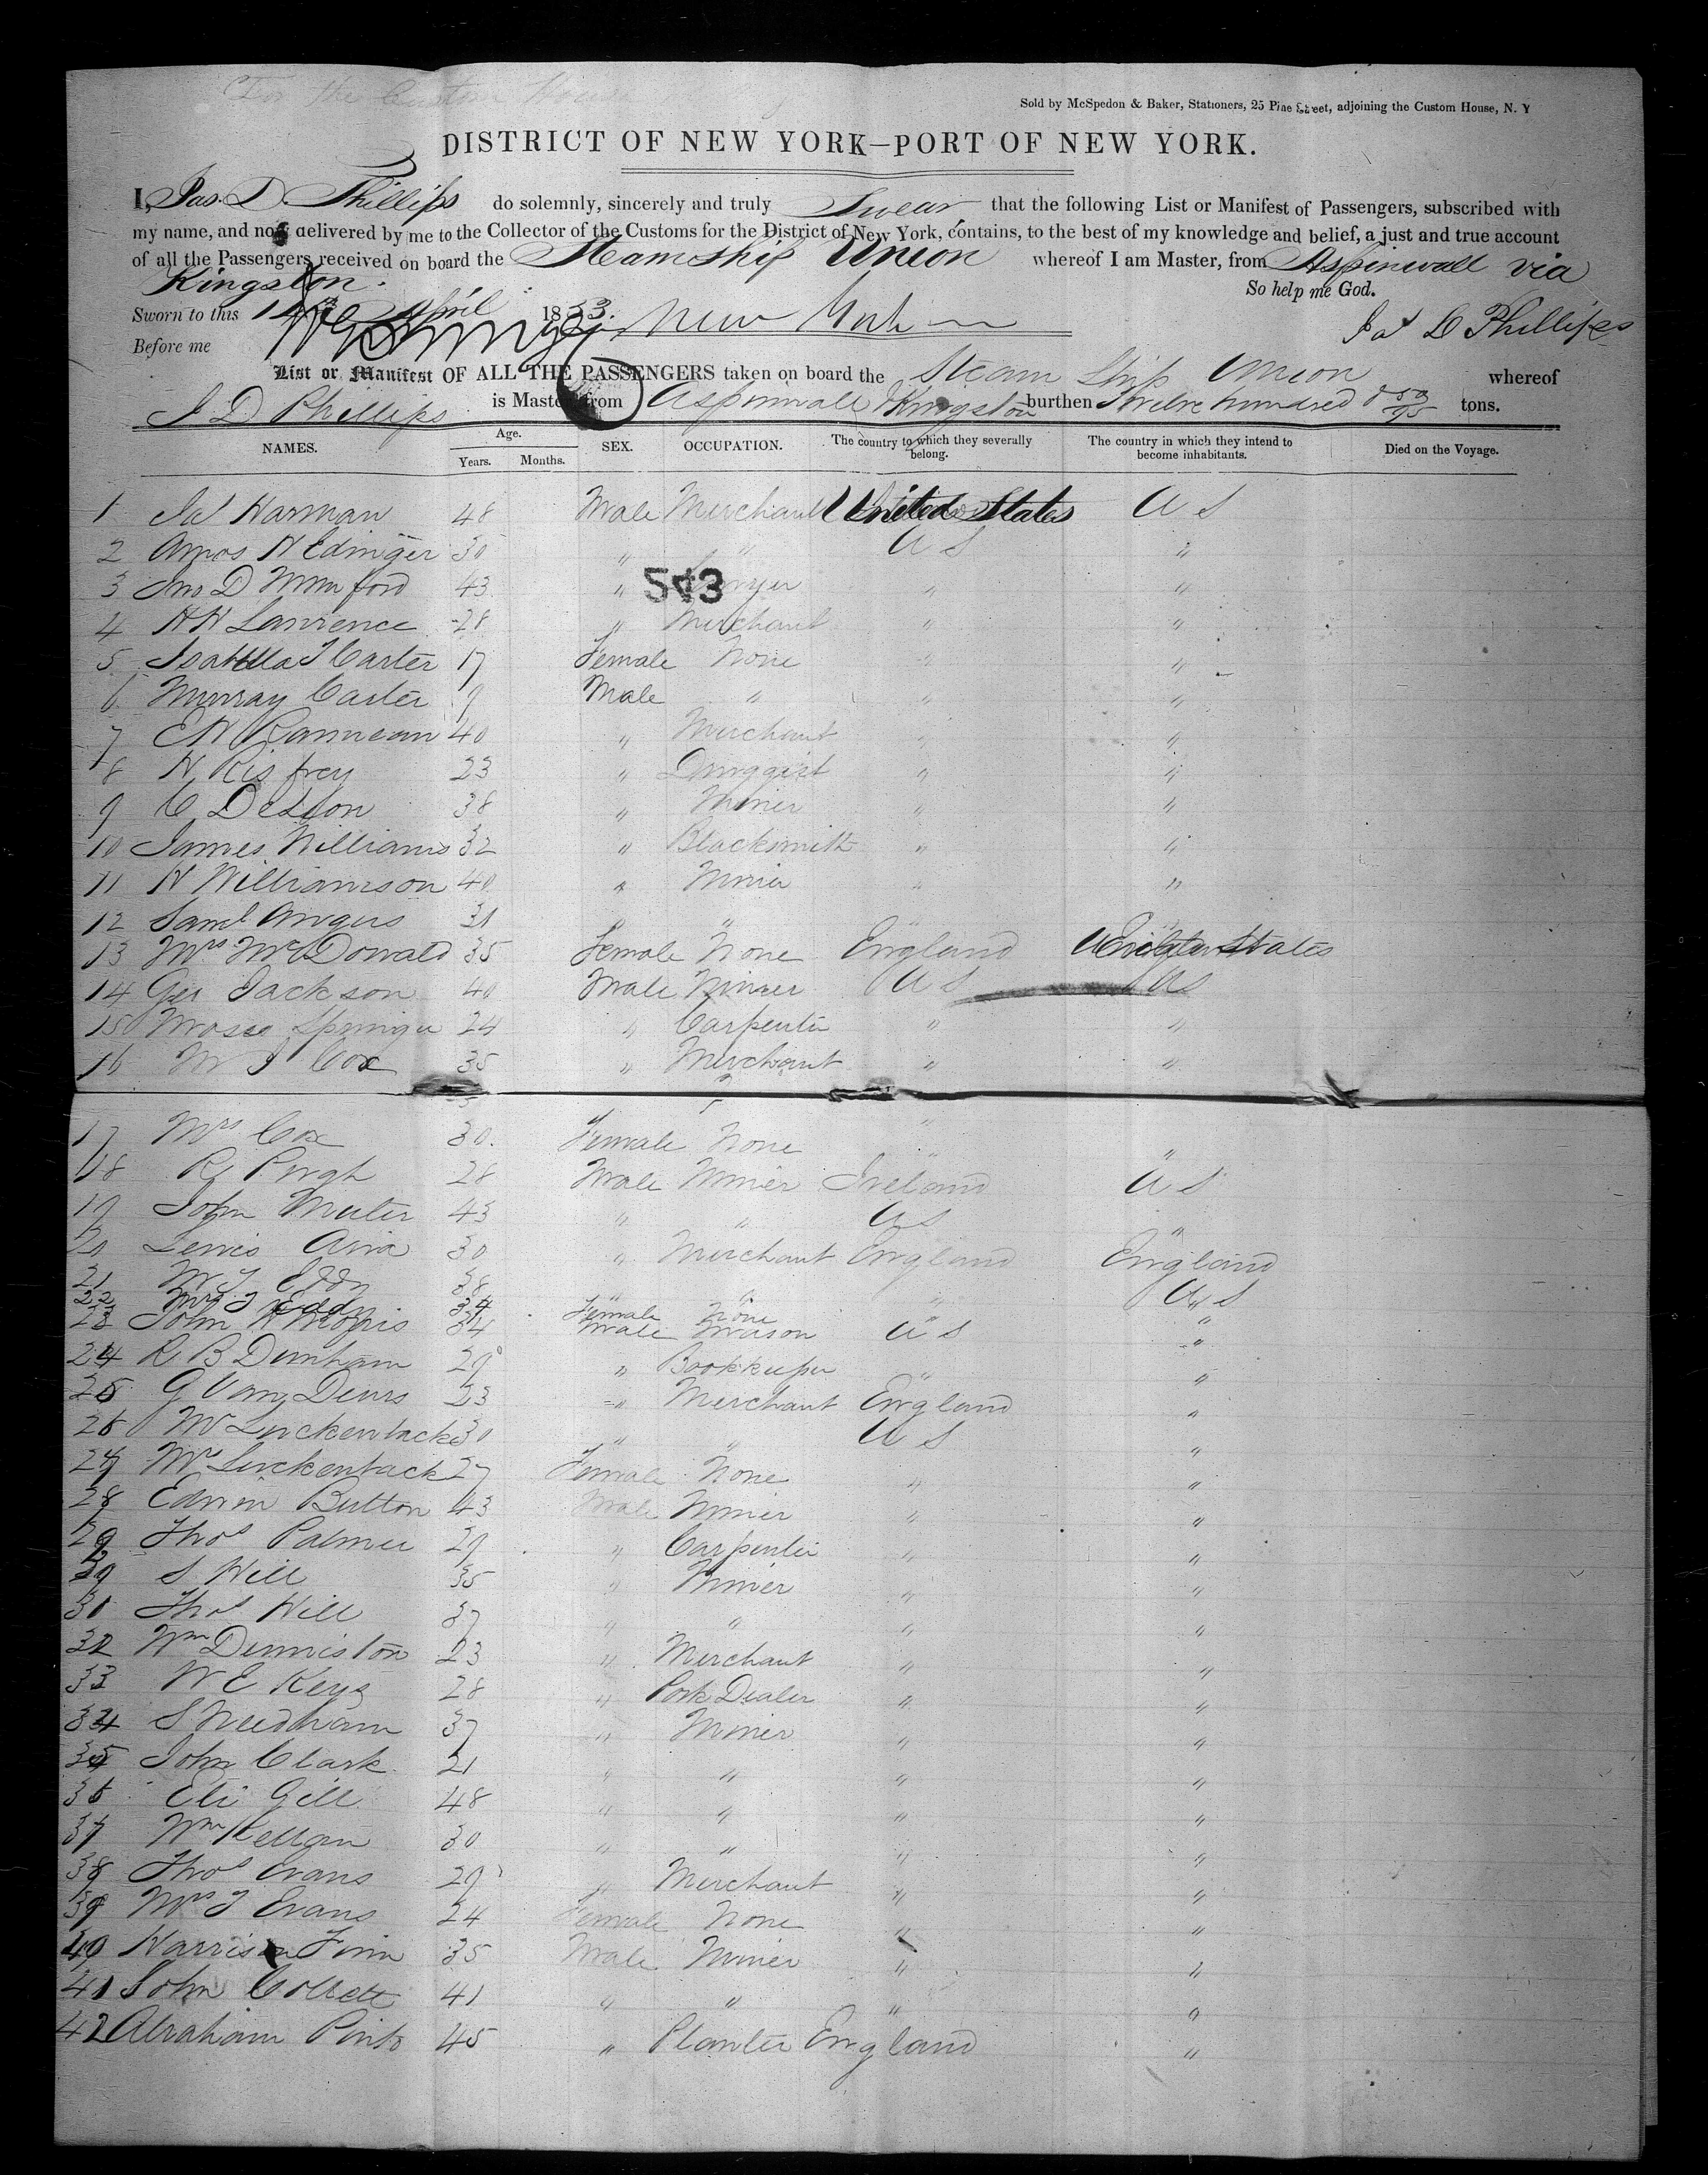 For the Custom House
Sold by McSpedon & Baker, Stationers, 25 Pine Street, adjoining the Custom House, N. Y
DISTRICT OF NEW YORK—PORT OF NEW YORK.
I, Jas. D. Phillips do solemnly, sincerely and truly Swear that the following List or Manifest of Passengers, subscribed with
my name, and now delivered by me to the Collector of the Customs for the District of New York, contains, to the best of my knowledge and belief, a just and true account
of all the Passengers received on board the Steamship Union whereof I am Master, from Aspinwall via
Kingston. So help me God.
Sworn to this April 1853. New York Jas D Phillips
Before me
List or Manifest OF ALL THE PASSENGERS taken on board the Steam Ship Union whereof
J D Phillips is Master, from Aspinwall & Kingston burthen Twelve hundred & 50/95 tons.
NAMES. Age. Years. Months. SEX. OCCUPATION. The country to which they severally belong. The country in which they intend to become inhabitants. Died on the Voyage.
1 Jas Harman 48 Male Merchant United States U S
2 Amos H Edinger 30 " " U S "
3 Jno D Mumford 43 " Lawyer " "
543
4 H H Lawrence 28 " Merchant " "
5 Isabella J Carter 17 Female None " "
6 Murray Carter 9 Male " " "
7 E H 40 " Merchant " "
8 H Risfrey 23 " Druggist " "
9 C Deslon 38 " Miner " "
10 James Williams 32 " Blacksmith " "
11 H Williamson 40 " Miner " "
12 Saml Angus 31 "
13 Mrs McDonald 35 Female None England United States
14 Geo Jackson 40 Male Miner U S U S
15 Moses Springer 24 " Carpenter " "
16 M J Cox 35 " Merchant " "
17 Mrs Cox 30. Female None " "
18 R Pugh 28 Male Miner Ireland U S
19 John Muter 43 " " U S "
20 Lewis 30 " Merchant England England
21 M J Eddy 38 " " " U S
22 Mrs J Eddy 34 Female None "
23 John H Morris 34 Male Mason U S "
24 R B Dunham 29 " Bookkeeper " "
25 G Van Deurs 23 " Merchant England "
26 M Luckenback 30 " " U S "
27 Mrs Luckenback 27 Female None " "
28 Edwin Button 43 Male Miner " "
29 Thos Palmer 29 " Carpenter " "
29 S Hill 35 " Miner " "
30 Thos Hill 37 " " " "
32 Wm Denniston 23 " Merchant " "
33 W E Keys 28 " Pork Dealer " "
34 S Needham 37 " Miner " "
35 John Clark 21 " " " "
36 Eli Gill 48 " " " "
37 Wm Kellan 30 " " " "
38 Thos Evans 29 " Merchant " "
39 Mrs J Evans 24 Female None " "
40 Harrison Finn 35 Male Miner " "
41 John Collett 41 " " " "
42 Abraham Pinto 45 " Planter England "